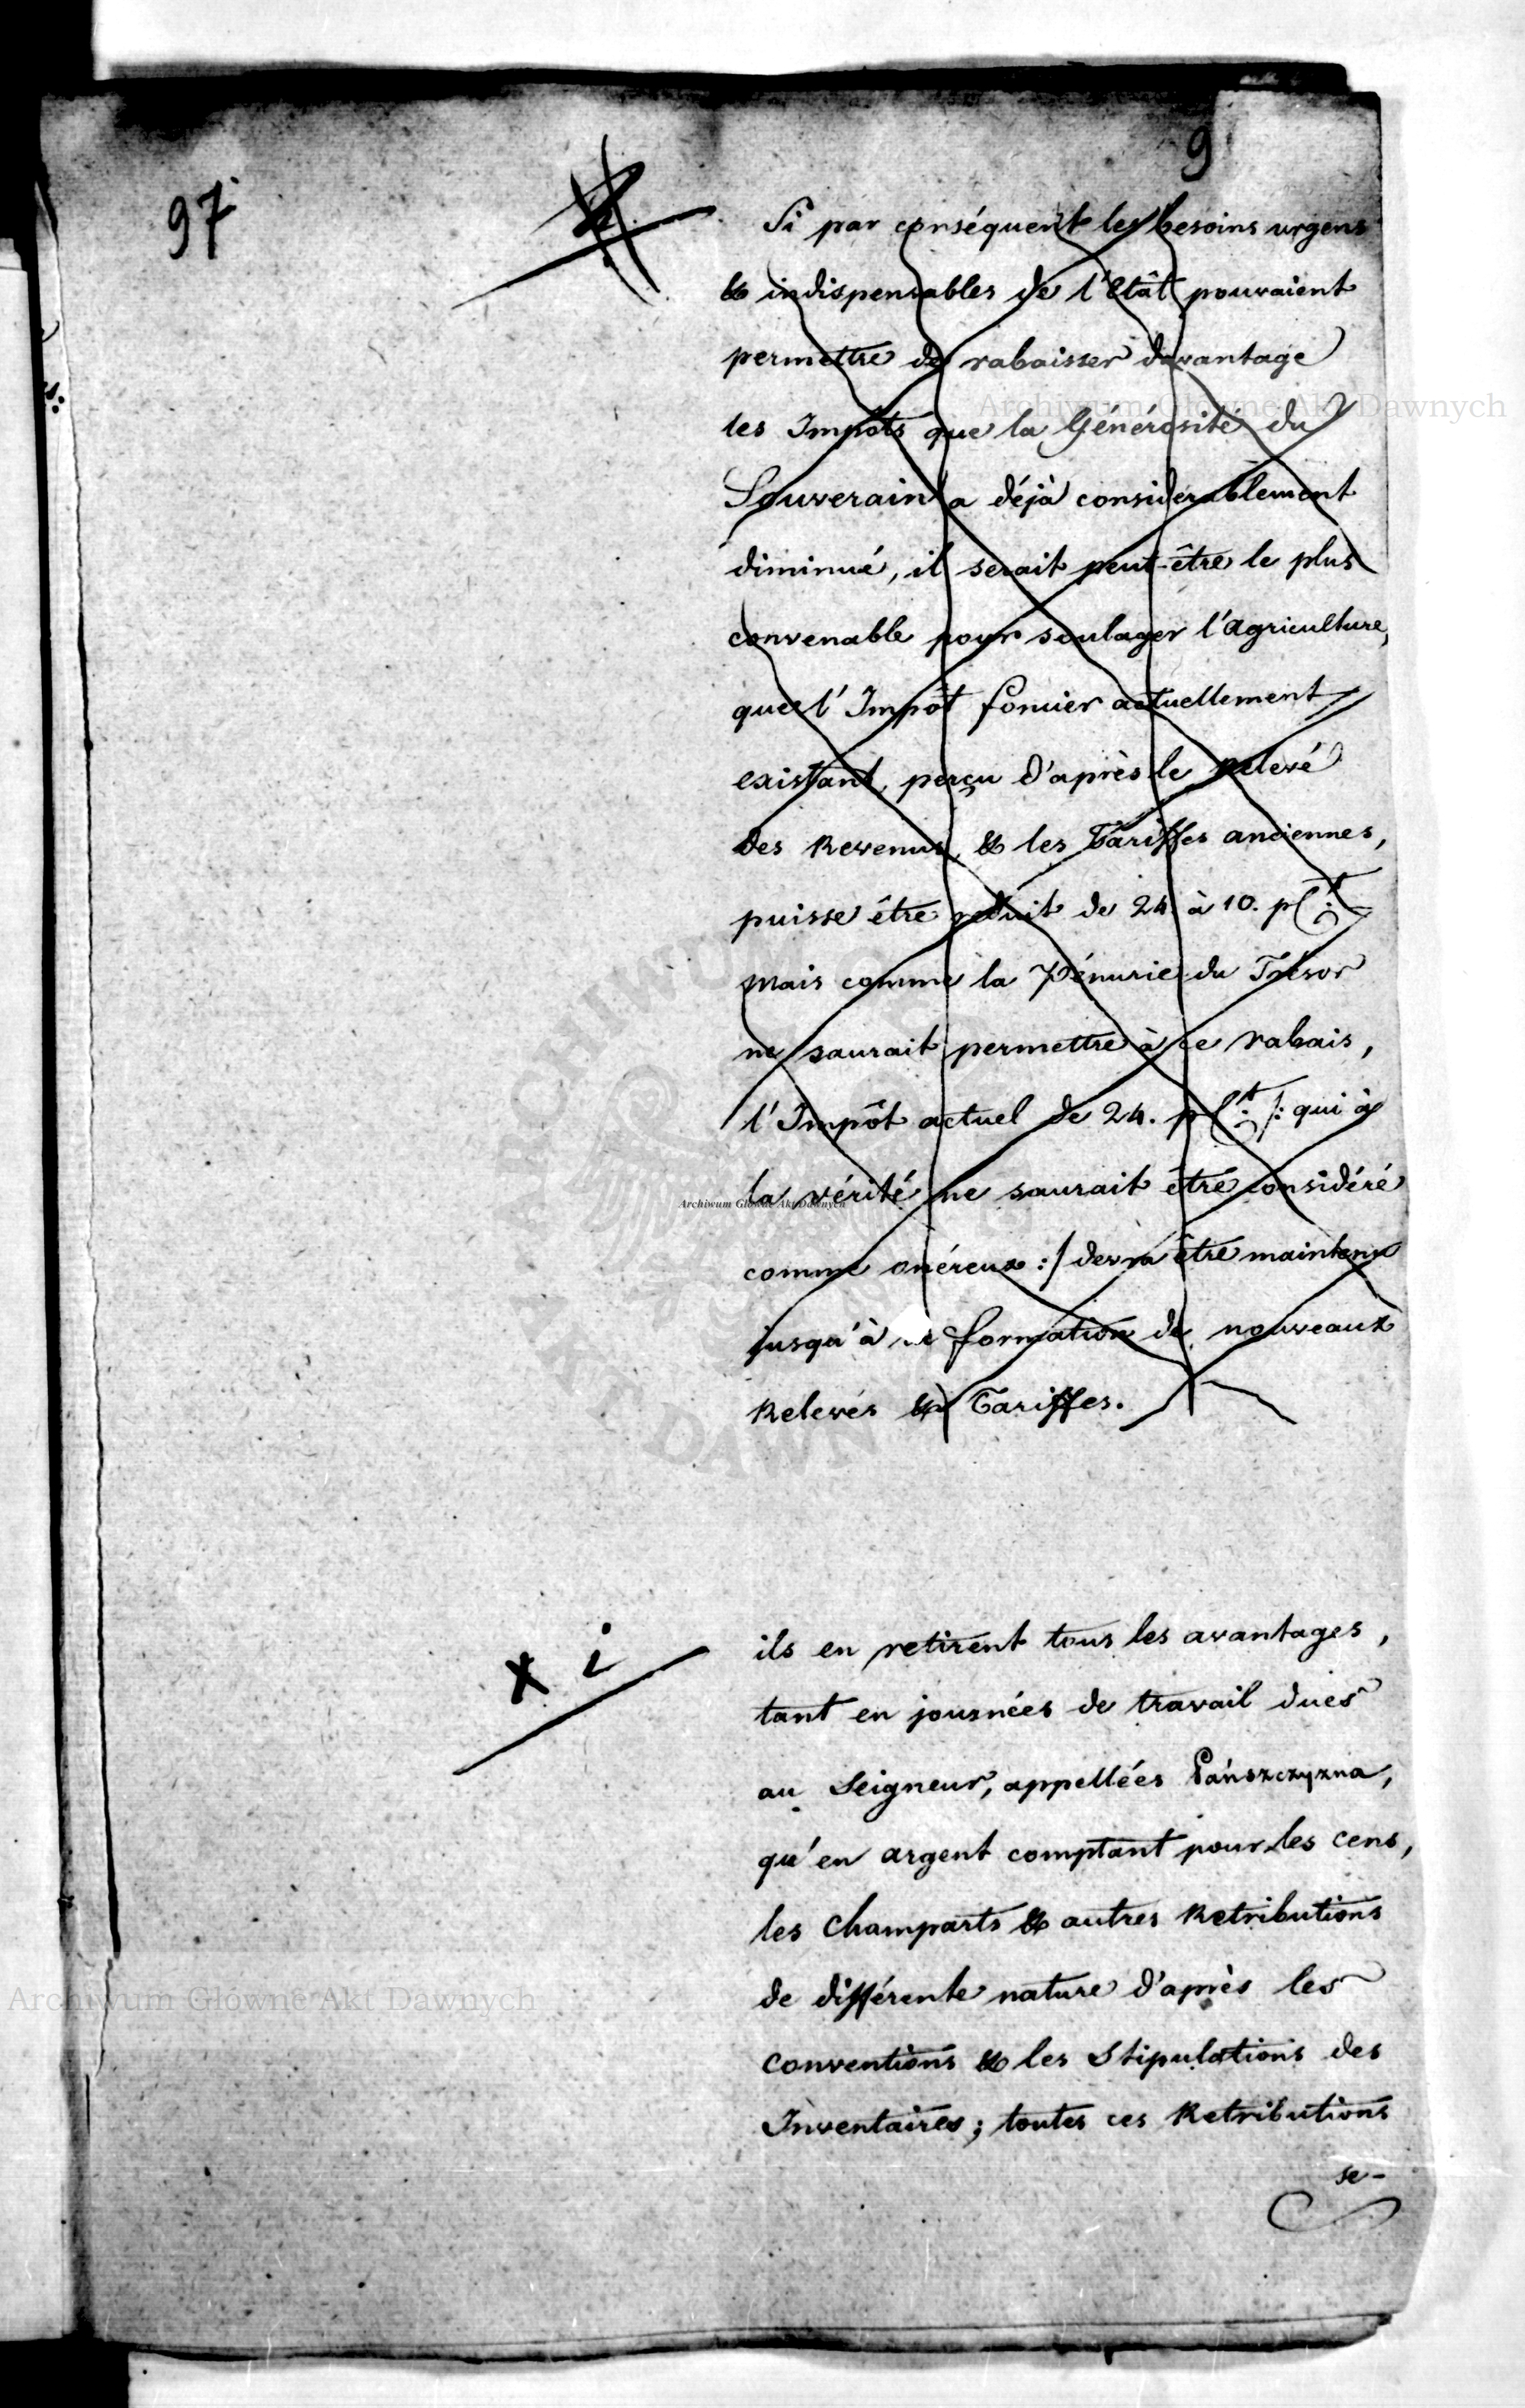 97
9
Si par conséquent les besoins urgens
& indispensables de l'Etât pouvaient
permettre de rabaisser davantage
les Impôts que la Générosité du
Souverain a déjà considerablement
diminué, il serait peut-être le plus
convenable pour soulager l'Agriculture,
que l'Impôt foncier actuellement
existant, perçu d'après le relevé
des Revenus, & les Tariffes anciennes,
puisse être réduit de 24 à 10. pCt:
mais comme la Pénurie du Trésor
ne saurait permettre à ce rabais,
l'Impôt actuel de 24. pCt: /: qui à
la vérité ne saurait être considéré
comme onéreux :/ devra être maintenu
jusqu'à formation de nouveaux
Relevés & Tariffes.
x i
ils en retirent tous les avantages,
tant en journées de travail dues
au Seigneur, appellées Pańszczyzna,
qu'en argent comptant pour les cens,
les champarts & autres Retributions
de différente nature d'après les
conventions & les Stipulations des
Inventaires; toutes ces Retributions
se-
Archiwum Główne Akt Dawnych
Archiwum Główne Akt Dawnych
Archiwum Główne Akt Dawnych